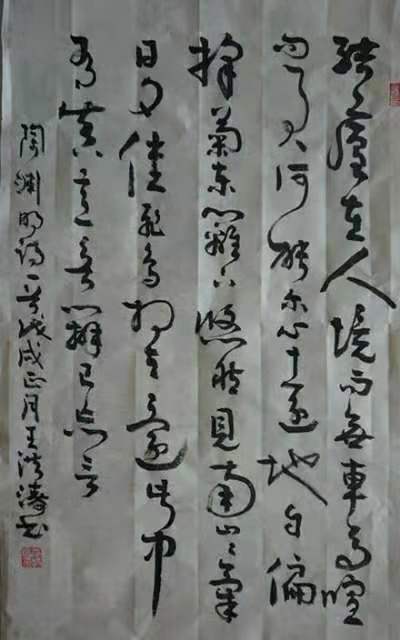 結廬在人境而無車馬喧
問君何能爾心遠地自偏
採菊東籬下悠然見南山〻氣
日夕佳飛鳥相與還此中
有真意欲辨已忘言
陶渊明詩一首戊戌正月王洪濤书